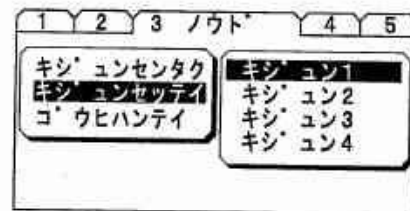 1 2 3 ノウド 4 5
キジュンセンタク
キジュンセッテイ
ゴウヒハンテイ
キジュン1
キジュン2
キジュン3
キジュン4